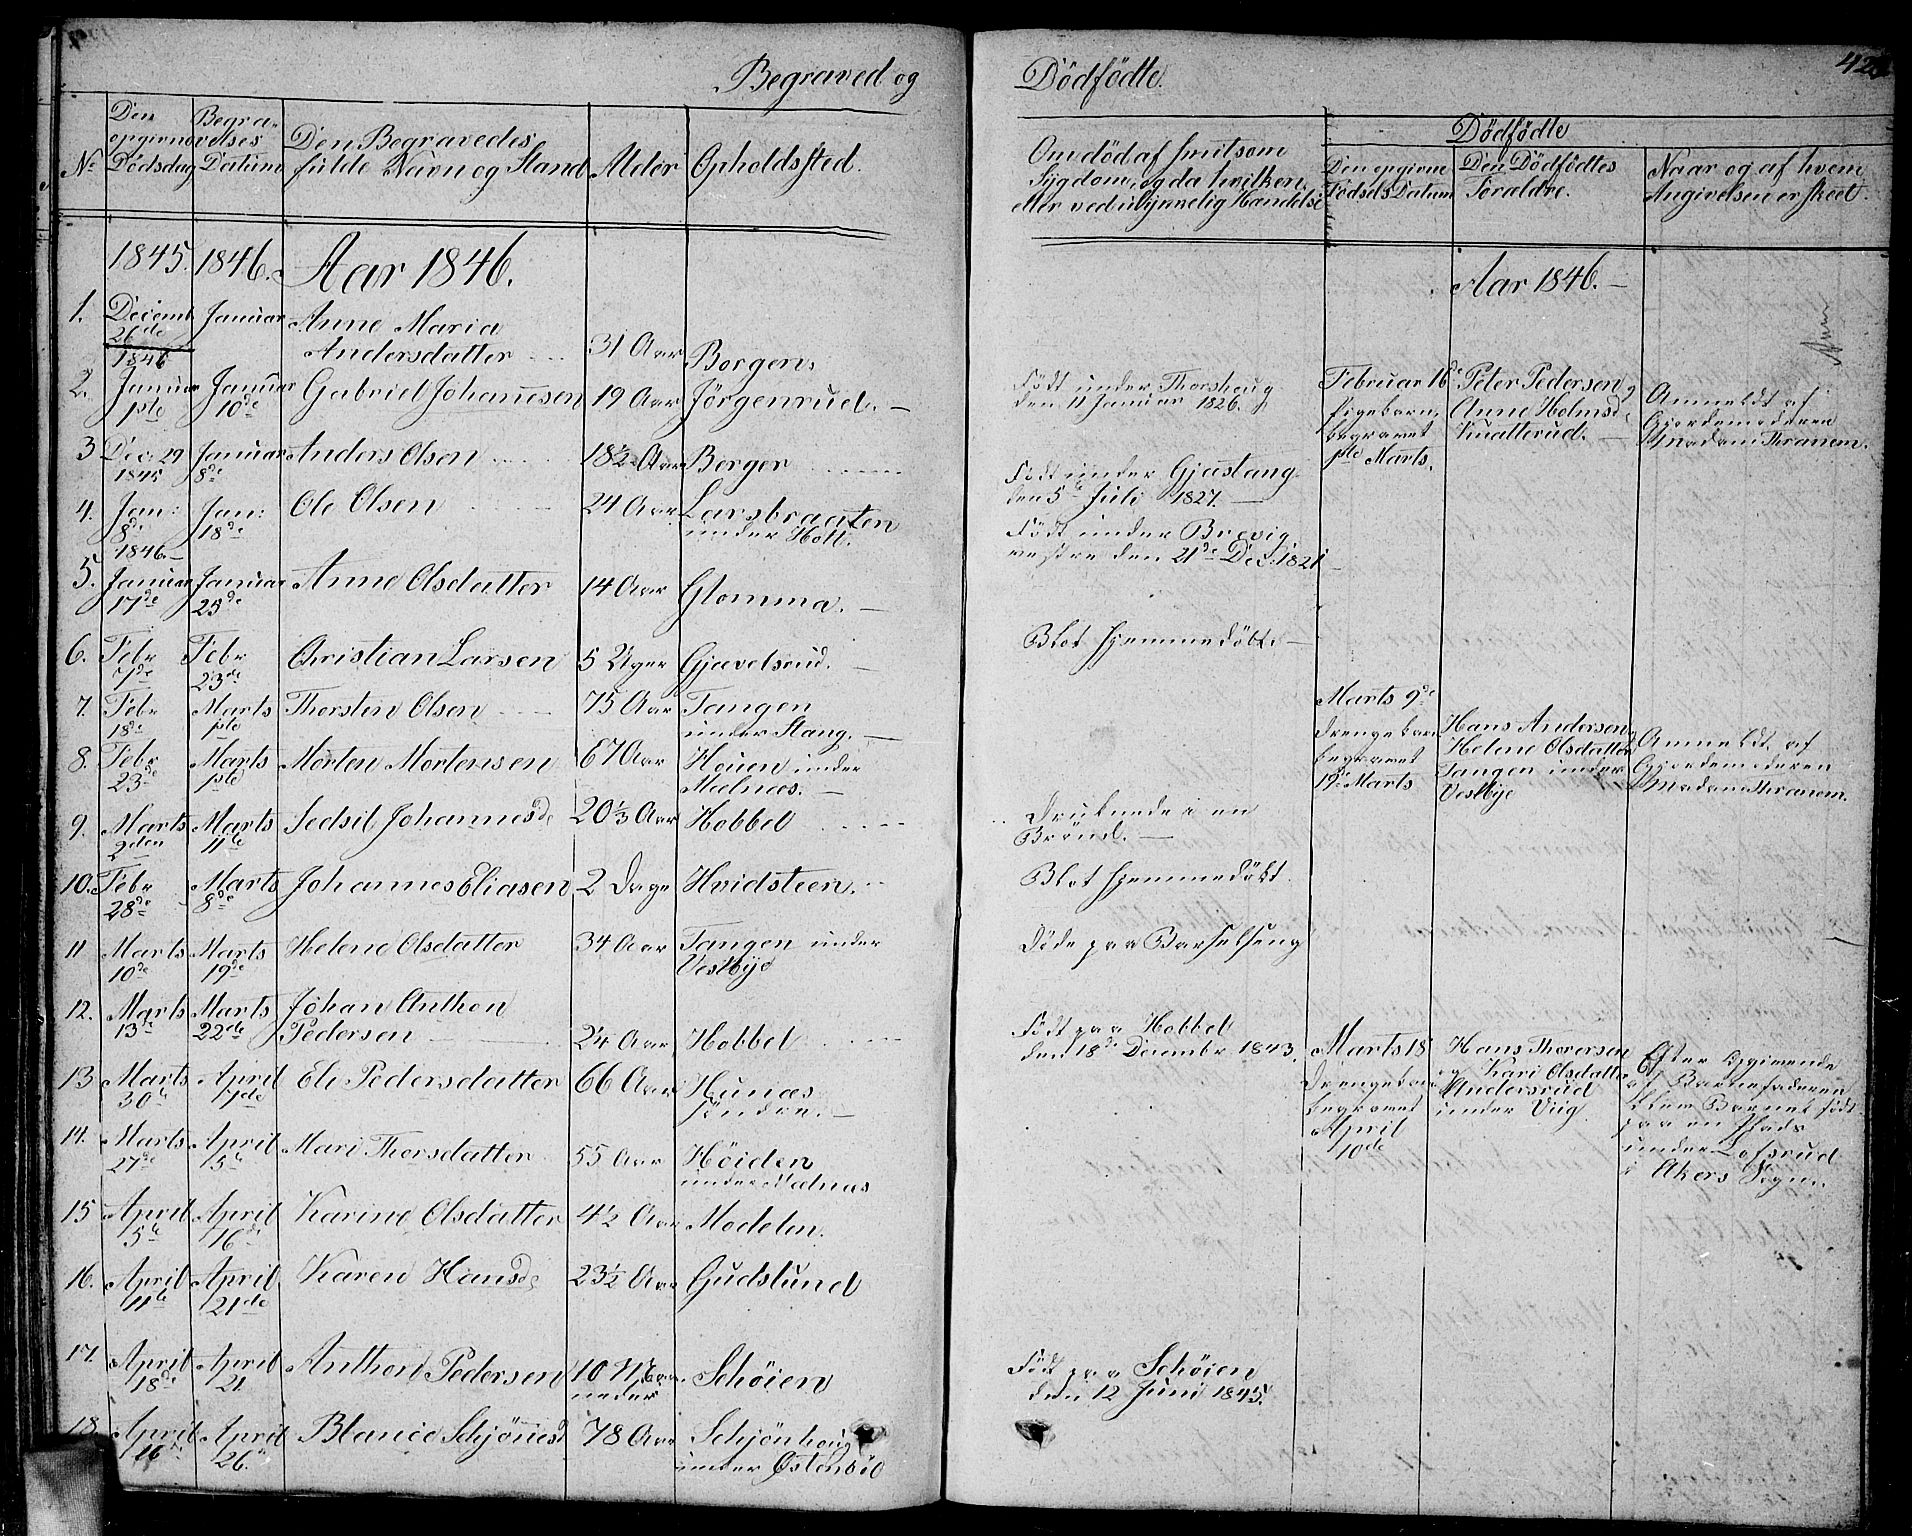 Begraved og
Dödfödte.
No
Den opgivne Dödsdag
Begravelses Datum
Den Begravedes fulde Navn og Stand
Alder
Opholdssted.
Om död af smitsom Sÿgdom, og da hvilken, eller ved uhÿnnelig Handelse
Dödfödte
Den opgivne Födsels Datum
Den Dödfödtes Foraldre.
Naar og af hvem Angivelsen er skeet.
1845. 1846. Aar 1846.
Aar 1846. —
1. Decemb 26de Januar Anne Maria
Andersdatter 31 Aar Borgen.
1846
2. Januar 1ste Januar 10de Gabriel Johannesen 19 Aar Jörgenrud. —
Födt under Thorshaug
den 11 Januar 1826.
3 Dec. 29 1845 Januar 8de Anders Olsen 18½ Aar Berger
Födt under Gjæstang
den 5te Juli 1827. —
4. Jan: 8de Jan: 18de Ole Olsen 24 Aar Larsbraaten
under Holt.
Födt under Brevig
vestre den 21de Dec. 1821
1846. —
5. Januar 17de Januar 25de Anne Olsdatter 14 Aar Glomma. —
6. Febr 7de Febr 23de Christian Larsen 5 Uger Gjævelsrud. —
Blot hjemmedöbt. —
7. Febr 18de Marts 1ste Thorsten Olsen 75 Aar Tangen
under Stang. —
8. Febr 23de Marts 1ste Morten Mortensen 67 Aar Houen under
Mælnæs. —
9. Marts 2den Marts 11te Sedsil Johannesd 20⅓ Aar Hobbel
Druknede i en
Brönd. —
10. Febr 28de Marts 8de Johannes Eliasen 2 Dage Hvidsteen.
Blot hjemmedöbt.
11 Marts 10de Marts 19de Helene Olsdatter 34 Aar Tangen under
Vestbÿe
Döde paa Barselseng
12. Marts 13de Marts 22de Johan Anthon
Pedersen 2¼ Aar Hobbel
Födt paa Hobbel
den 18de Decembr 1843.
13 Marts 30te April 7de Eli Pedersdatter 66 Aar Hunæs
söndre. —
14. Marts 27de April 5te Mari Thorsdatter 55 Aar Höiden
under Mælnæs
15 April 5te April 16de Karine Olsdatter 4½ Aar Modelen.
16. April 11te April 21de Karen Hansd 23½ Aar Gudslund
17. April 18de April 21. Anthon Pedersen 10 Maaneder Schöien
Födt paa Schöien
den 12 Juni 1845.
18. April 16de April 26. Blance Schjönesd 78 Aar Schjönhaug
under Östenböl
Februar 16de
Pigebarn,
begravet
1ste Marts.
Peter Pedersen og
Anne Holmsd
Knatterud. —
Anmeldt af
Gjordemoderen
Madam Thranem.
Marts 9de
Drengebarn
begravet
19de Marts
Hans Andersen og
Helene Olsdatter
Tangen under
Vestbÿe
Anmeldt af
Gjordemoderen
Madam Thranem.
Marts 18
Drengebarn
begravet
April
10de
Hans Thoresen
og Kari Olsdatter
Andersrud
under Viig.
Efter Opgivende
af Barnefaderen
blev Barnet födt
paa en Plads
under Lofsrud
i Akers Sogn.